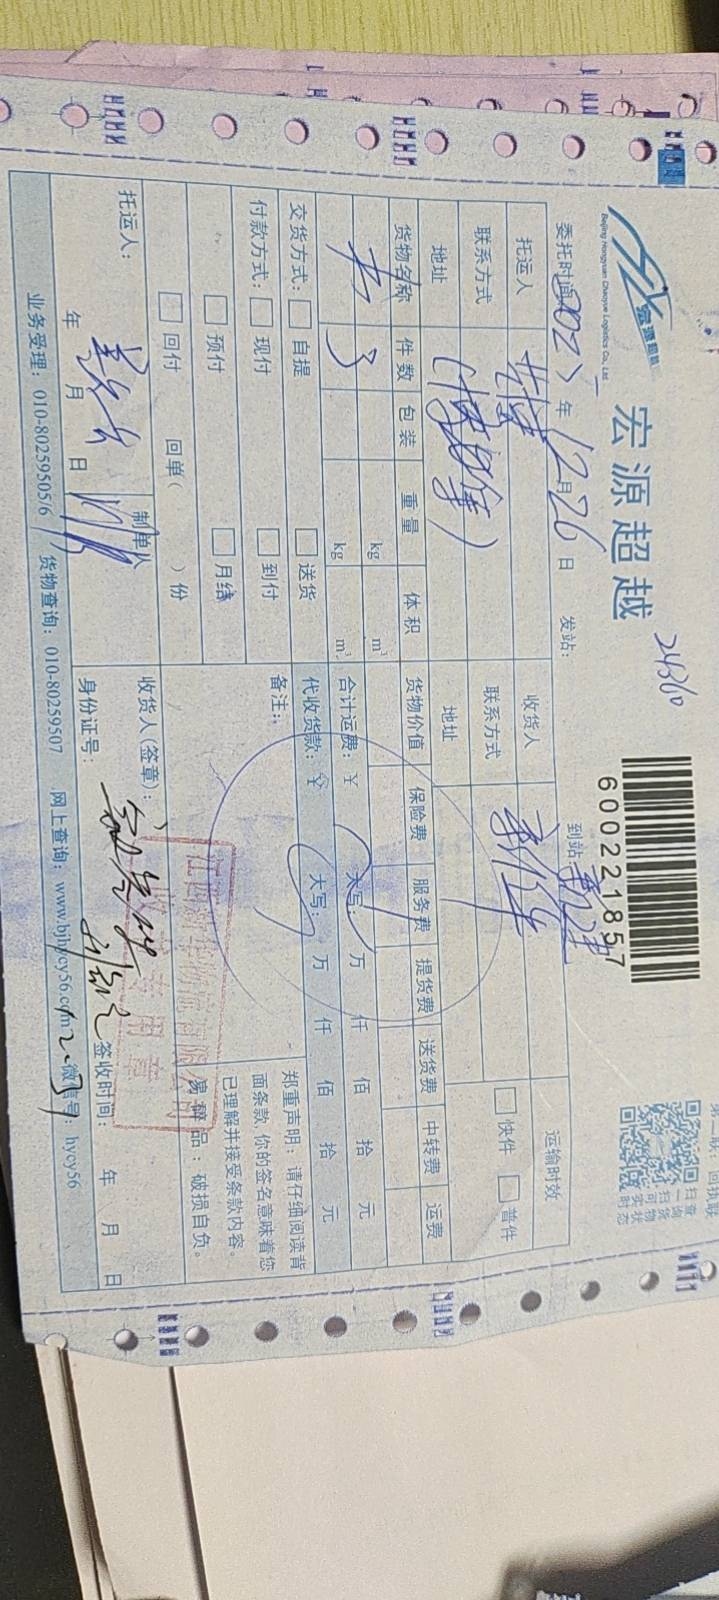 宏源超越
Beijing Hongyuan Chaoyue Logistics Co., Ltd.
宏源超越
24360
600221857
第二联：回执联
扫一扫可实时
查询货物状态
委托时间 年 12月26日 发站： 到站：
托运人 收货人 运输时效
联系方式 联系方式 快件 普件
地址 地址
货物名称 件数 包装 重量 体积 货物价值 保险费 服务费 提货费 送货费 中转费 运费
书 3 kg m³
kg m³ 合计运费：¥ 大写： 万 仟 佰 拾 元
交货方式： 自提 送货 代收货款：¥ 大写： 万 仟 佰 拾 元
付款方式： 现付 到付 备注：
预付 月结
回付 回单( )份
郑重声明：请仔细阅读背
面条款，你的签名意味着您
已理解并接受条款内容。
易碎品：破损自负。
托运人： 制单人 收货人(签章)：
年 月 日 身份证号： 签收时间： 年 月 日
业务受理：010-80259505/6 货物查询：010-80259507 网上查询：www.bjhycy56.com 微信号：hycy56